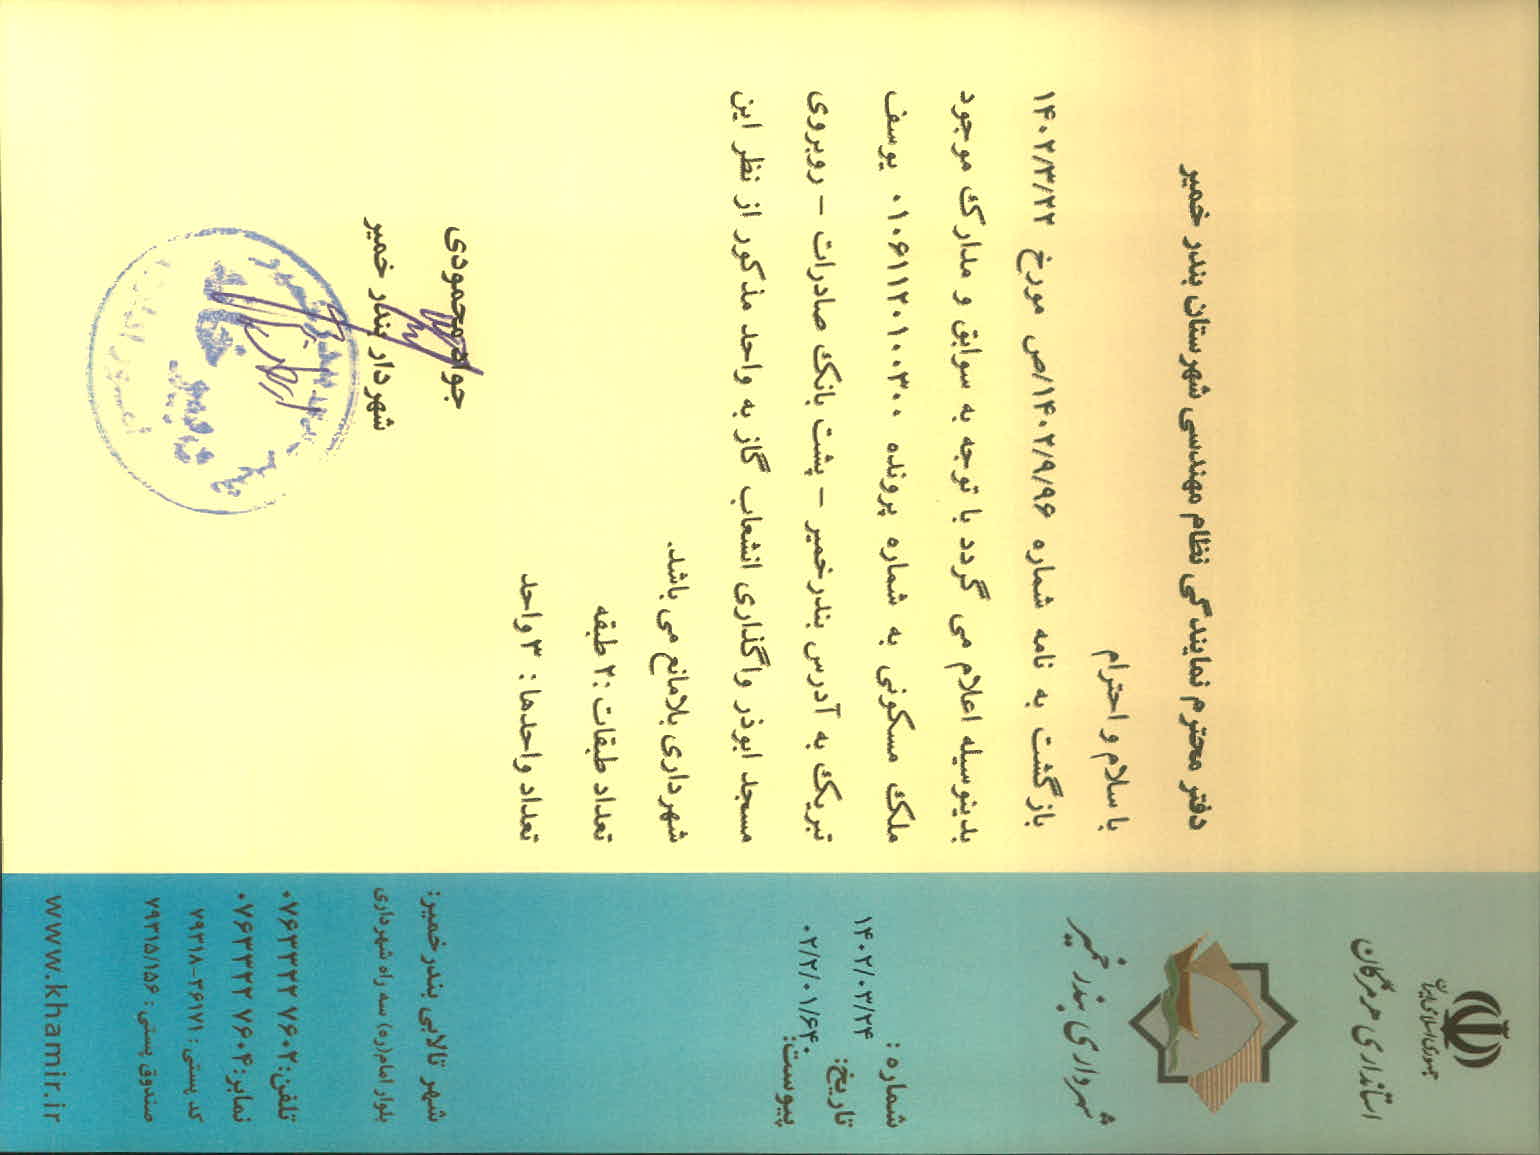 جمهوری اسلامی ایران
استانداری هرمزگان
شهرداری بندر خمیر
شماره :
۱۴۰۲/۰۳/۲۴
تاریخ:
۰۲/۲/۰۱/۶۴۰
پیوست:
دفتر محترم نمایندگی نظام مهندسی شهرستان بندر خمیر
با سلام و احترام
بازگشت به نامه شماره ۱۴۰۲/۹/۹۶/ص مورخ ۱۴۰۲/۳/۲۲
بدینوسیله اعلام می گردد با توجه به سوابق و مدارک موجود
ملک مسکونی به شماره پرونده ۰۱۰۶۱۱۲۰۱۰۰۳۰۰ یوسف
تبریک به آدرس بندرخمیر – پشت بانک صادرات – روبروی
مسجد ابوذر واگذاری انشعاب گاز به واحد مذکور از نظر این
شهرداری بلامانع می باشد.
تعداد طبقات :۲ طبقه
تعداد واحدها : ۳ واحد
جواد محمودی
شهردار بندر خمیر
شهر تالابی بندرخمیر:
بلوار امام(ره) سه راه شهرداری
تلفن:۰۷۶۳۳۲۲ ۷۶۰۲
نمابر:۰۷۶۳۳۲۲ ۷۶۰۴
کد پستی : ۷۹۳۱۸-۳۶۱۷۱
صندوق پستی : ۷۹۳۱۵/۱۵۶
www.khamir.ir